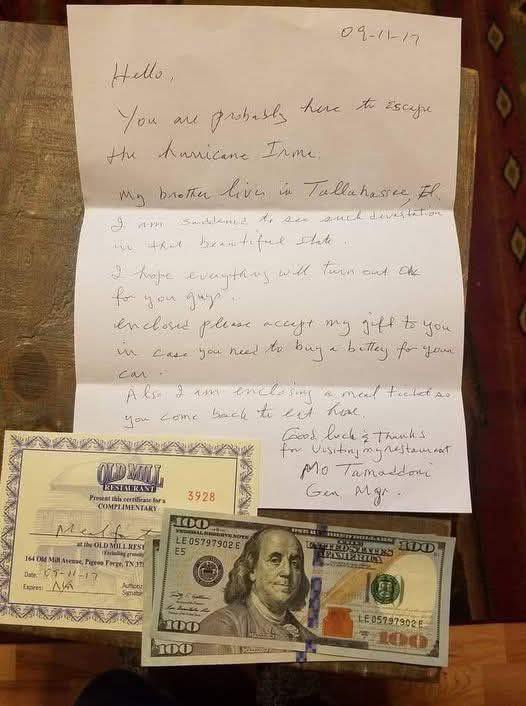 09-11-17
Hello,
You are probably here to escape
the hurricane Irma.
My brother lives in Tallahassee, Fl.
I am saddened to see such devastation
in that beautiful state.
I hope everything will turn out ok
for you guys.
enclosed please accept my gift to you
in case you need to buy a battery for your
car.
Also I am enclosing a meal ticket so
you come back to eat here.
Good luck & Thanks
for visiting my restaurant
Mo Tamaddoni
Gen Mgr.
OLD MILL
RESTAURANT
Present this certificate for a
COMPLIMENTARY
3928
at the OLD MILL REST
(Excluding gratuity
164 Old Mill Avenue, Pigeon Forge, TN 37
Date: 09-11-17
Expires: N/A
Authoriz
Signatur
100
FEDERAL RESERVE NOTE
LE 05797902 E
E5
UNITED STATES
OF AMERICA
100
LE 05797902 E
100
100
100